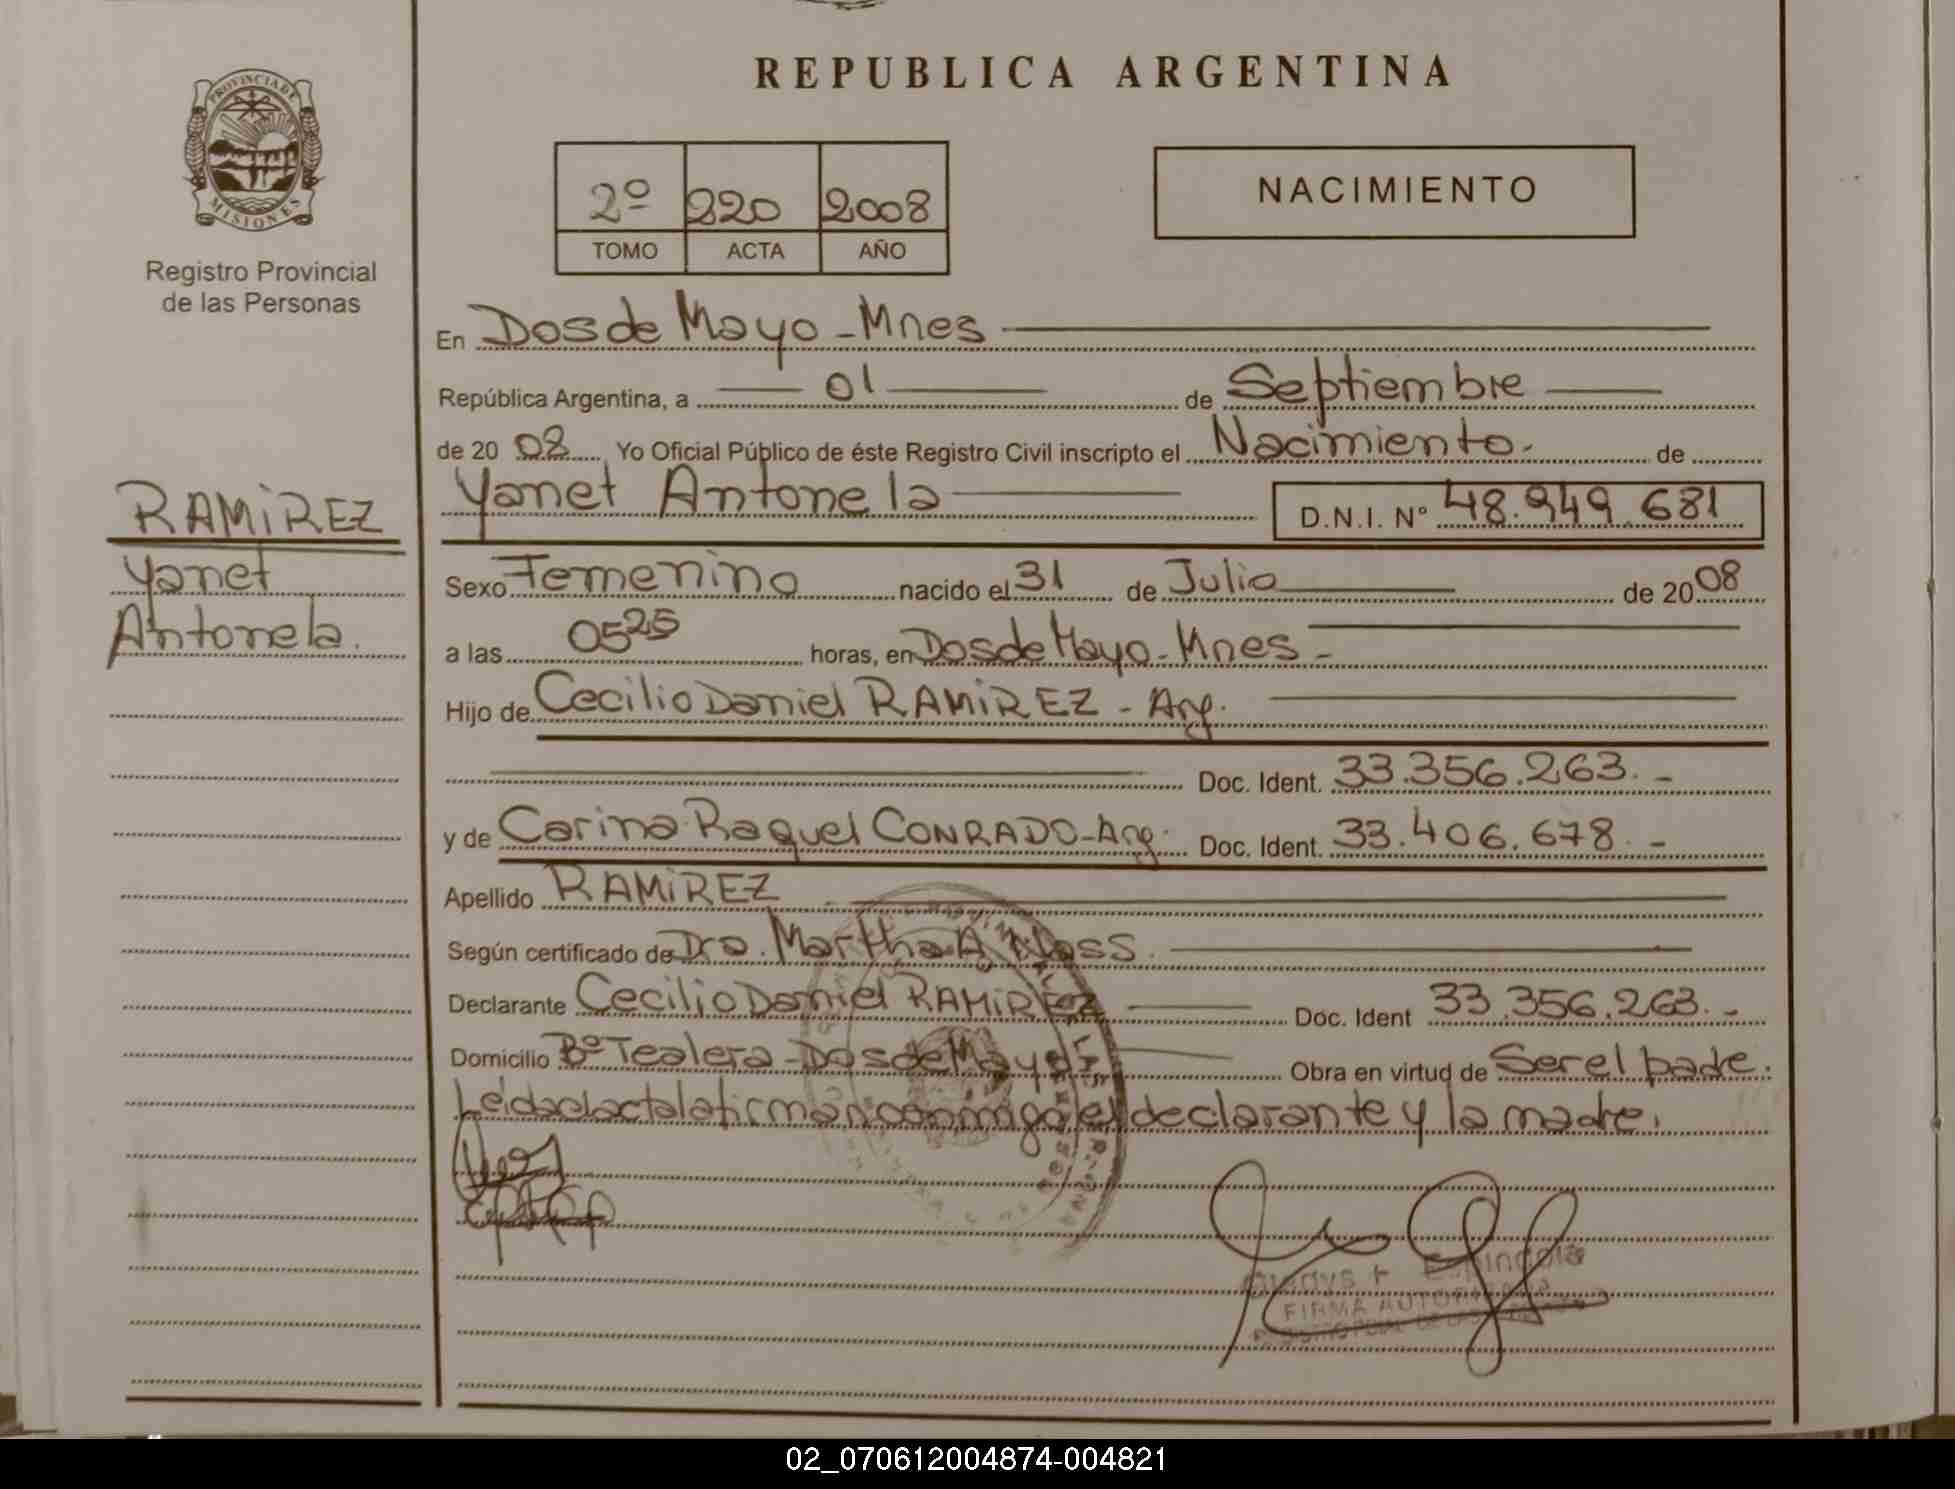 PROVINCIA DE
MISIONES
Registro Provincial
de las Personas
RAMIREZ
Yanet
Antonela.
REPUBLICA ARGENTINA
2º 220 2008
TOMO ACTA AÑO
NACIMIENTO
En Dos de Mayo - Mnes
República Argentina, a 01 de Septiembre
de 20 08 Yo Oficial Público de éste Registro Civil inscripto el Nacimiento. de
Yanet Antonela D.N.I. Nº 48.949.681
Sexo Femenino nacido el 31 de Julio de 2008
a las 05 25 horas, en Dos de Mayo - Mnes -
Hijo de Cecilio Daniel RAMIREZ - Arg.
Doc. Ident. 33.356.263. -
y de Carina Raquel CONRADO - Arg. Doc. Ident. 33.406.678. -
Apellido RAMIREZ
Según certificado de Dra. Martha A.
Declarante Cecilio Daniel RAMIREZ Doc. Ident 33.356.263. -
Domicilio Bº Tealera - Dos de Mayo Obra en virtud de Ser el padre.
Leida el acta la firman conmigo el declarante y la madre.
Gladys F. Espindola
FIRMA AUTORIZADA
02_070612004874-004821